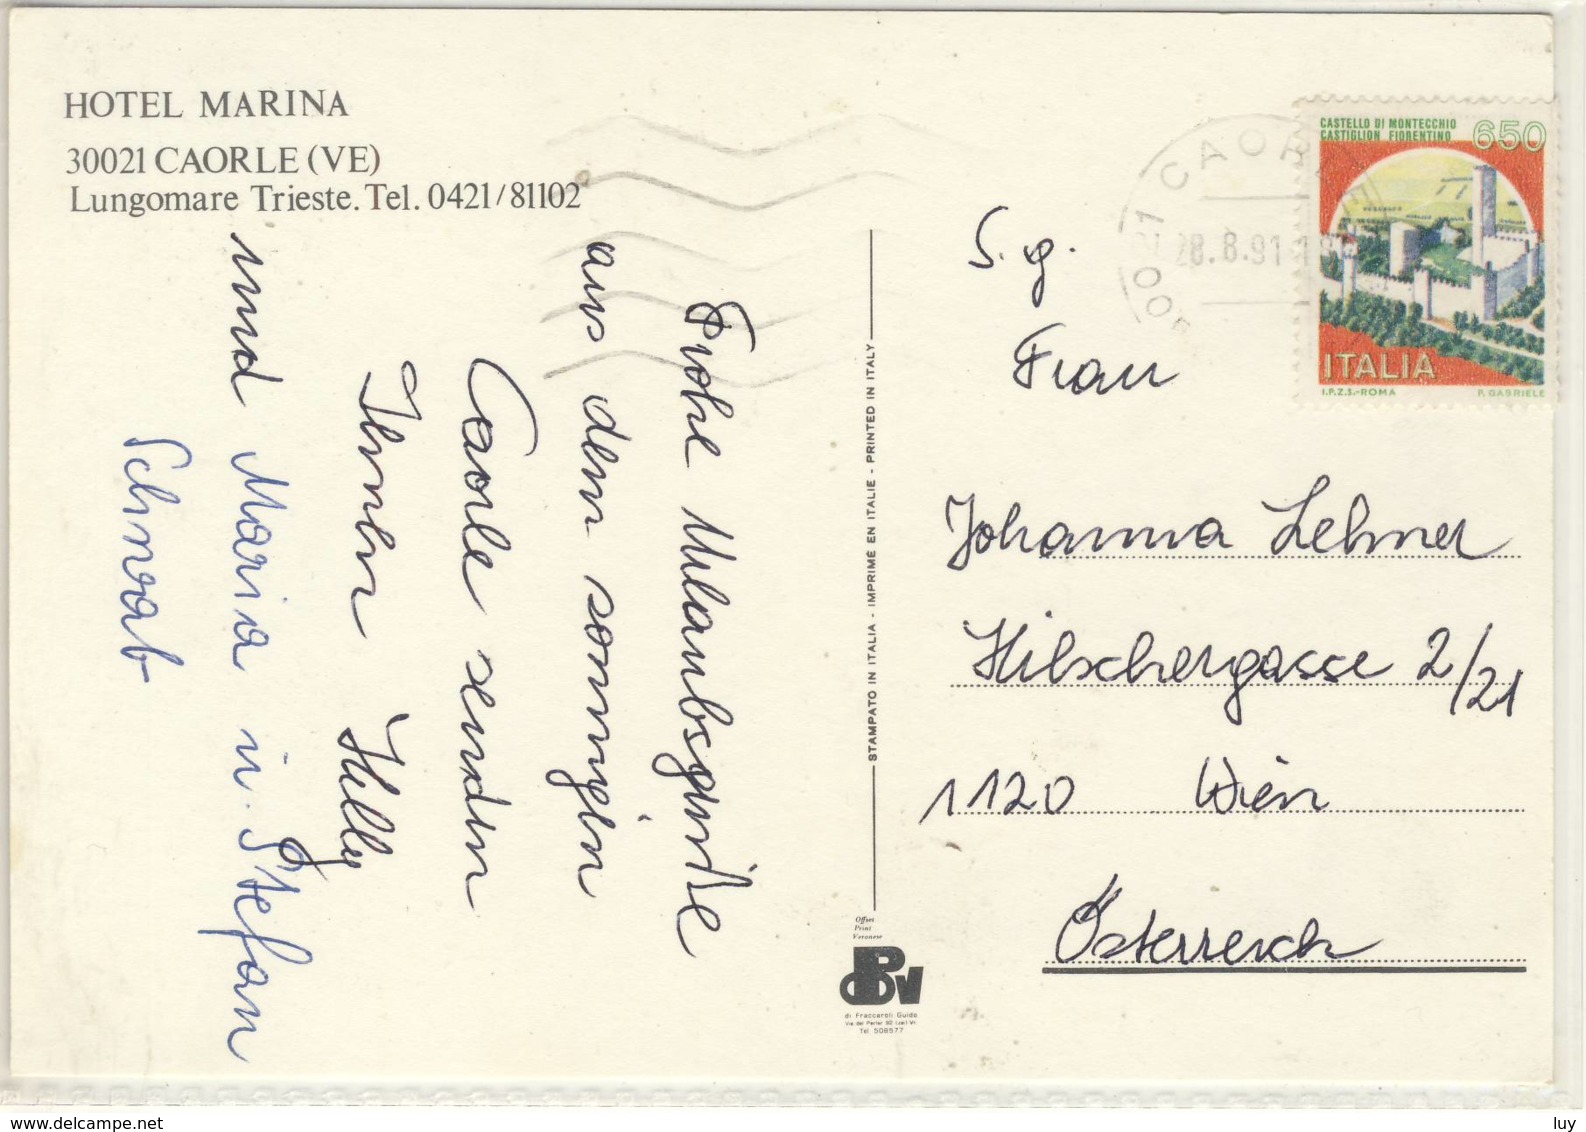 HOTEL MARINA
30021 CAORLE (VE)
Lungomare Trieste. Tel. 0421/81102
Frohe Urlaubsgrüße
aus dem sonnigen
Caorle senden
Ihnen Helly
und Maria u. Stefan
Schwab
STAMPATO IN ITALIA - IMPRIMÉ EN ITALIE - PRINTED IN ITALY
Offset
Print
Veronese
OPV
di Fraccaroli Guido
Tel 508577
CASTELLO DI MONTECCHIO
CASTIGLION FIORENTINO
650
ITALIA
I.P.Z.S.-ROMA P. GABRIELE
28.8.91
S. g.
Frau
Johanna Lehner
Hilschergasse 2/21
1120 Wien
Österreich
www.delcampe.net
luy